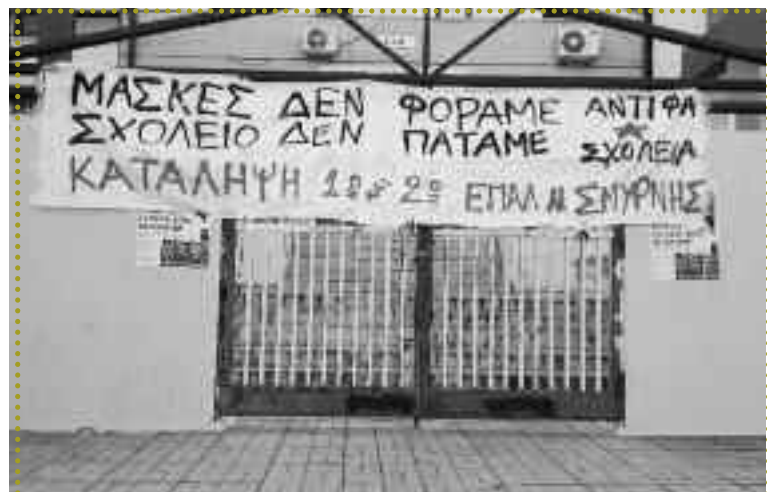 ΜΑΣΚΕΣ ΔΕΝ ΦΟΡΑΜΕ ΑΝΤΙΦΑ
ΣΧΟΛΕΙΟ ΔΕΝ ΠΑΤΑΜΕ ΣΧΟΛΕΙΑ
ΚΑΤΑΛΗΨΗ 1º 2º ΕΠΑΛ Ν ΣΜΥΡΝΗΣ